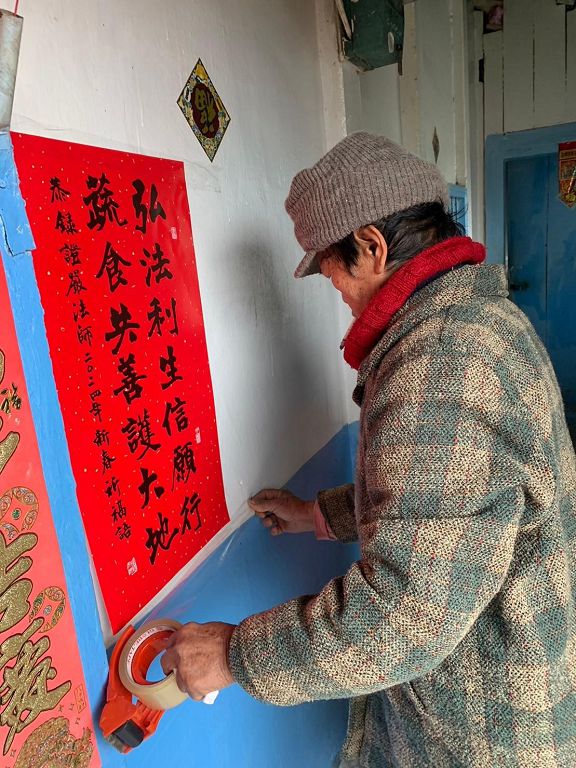 弘法利生信願行
蔬食共善護大地
恭錄證嚴法師二〇二四年新春祈福語
福